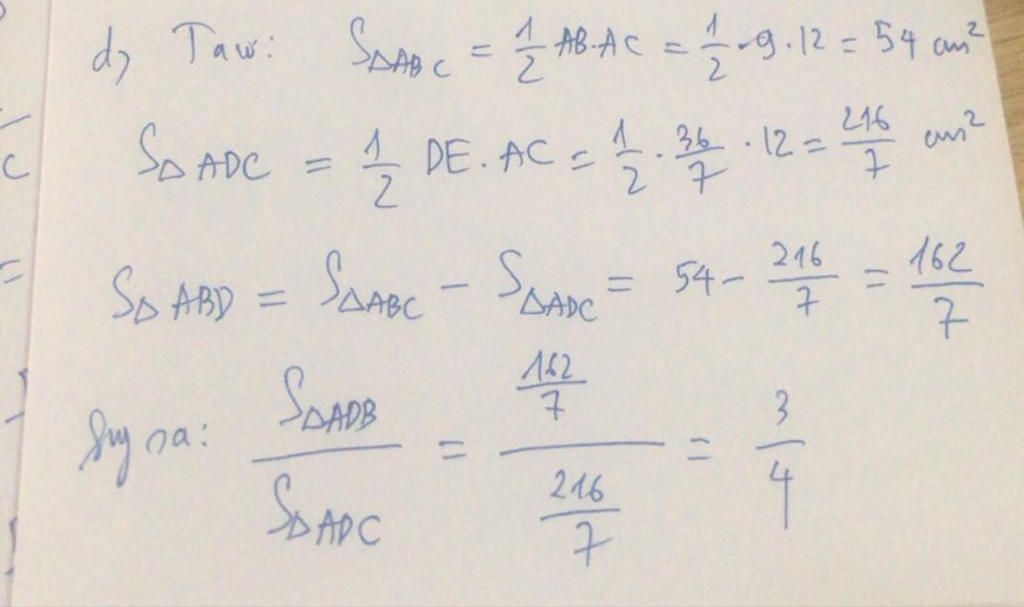 d) Ta có: S△ABC = 1/2 AB.AC = 1/2 . 9 . 12 = 54 cm²
S△ADC = 1/2 DE.AC = 1/2 . 36/7 . 12 = 216/7 cm²
S△ABD = S△ABC - S△ADC = 54 - 216/7 = 162/7
Suy ra: S△ADB / S△ADC = (162/7) / (216/7) = 3/4